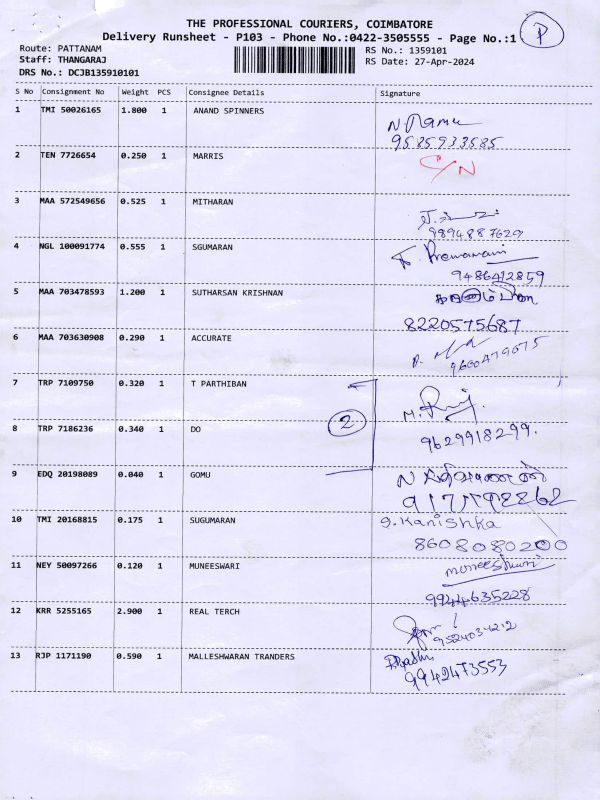 THE PROFESSIONAL COURIERS, COIMBATORE
Delivery Runsheet - P103 - Phone No.:0422-3505555 - Page No.:1 P
Route: PATTANAM RS No.: 1359101
Staff: THANGARAJ RS Date: 27-Apr-2024
DRS No.: DCJB135910101
S No Consignment No Weight PCS Consignee Details Signature
1 TMI 50026165 1.800 1 ANAND SPINNERS
N. Ramu
9585933585
2 TEN 7726654 0.250 1 MARRIS
C/N
3 MAA 572549656 0.525 1 MITHARAN
9894887629
4 NGL 100091774 0.555 1 SGUMARAN
9486412859
5 MAA 703478593 1.200 1 SUTHARSAN KRISHNAN
8220575687
6 MAA 703630908 0.290 1 ACCURATE
9600479675
7 TRP 7109750 0.320 1 T PARTHIBAN
2
8 TRP 7186236 0.340 1 DO
9629918299.
9 EDQ 20198089 0.040 1 GOMU
10 TMI 20168815 0.175 1 SUGUMARAN
g. Kanishka
8608080200
11 NEY 50097266 0.120 1 MUNEESWARI
muneeshwari
9944635228
12 KRR 5255165 2.900 1 REAL TERCH
9524034212
13 RJP 1171190 0.590 1 MALLESHWARAN TRANDERS
9942473553